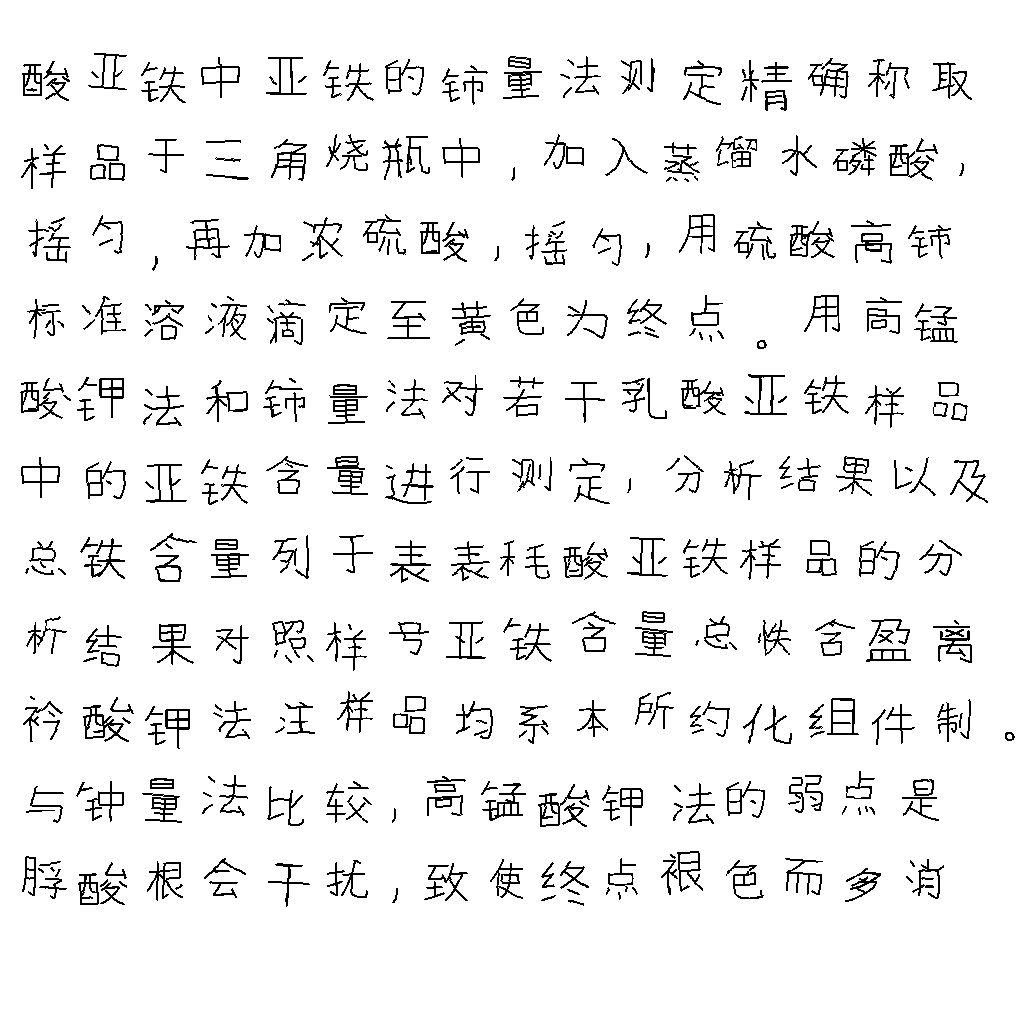 酸亚铁中亚铁的铈量法测定精确称取
样品于三角烧瓶中，加入蒸馏水磷酸，
摇匀，再加浓硫酸，摇匀，用硫酸高铈
标准溶液滴定至黄色为终点。用高锰
酸钾法和铈量法对若干乳酸亚铁样品
中的亚铁含量进行测定，分析结果以及
总铁含量列于表表秏酸亚铁样品的分
析结果对照样号亚铁含量总怢含盈离
衿酸钾法注样品均系本所约化组件制。
与钟量法比较，高锰酸钾法的弱点是
脬酸根会干扰，致使终点褪色而多消